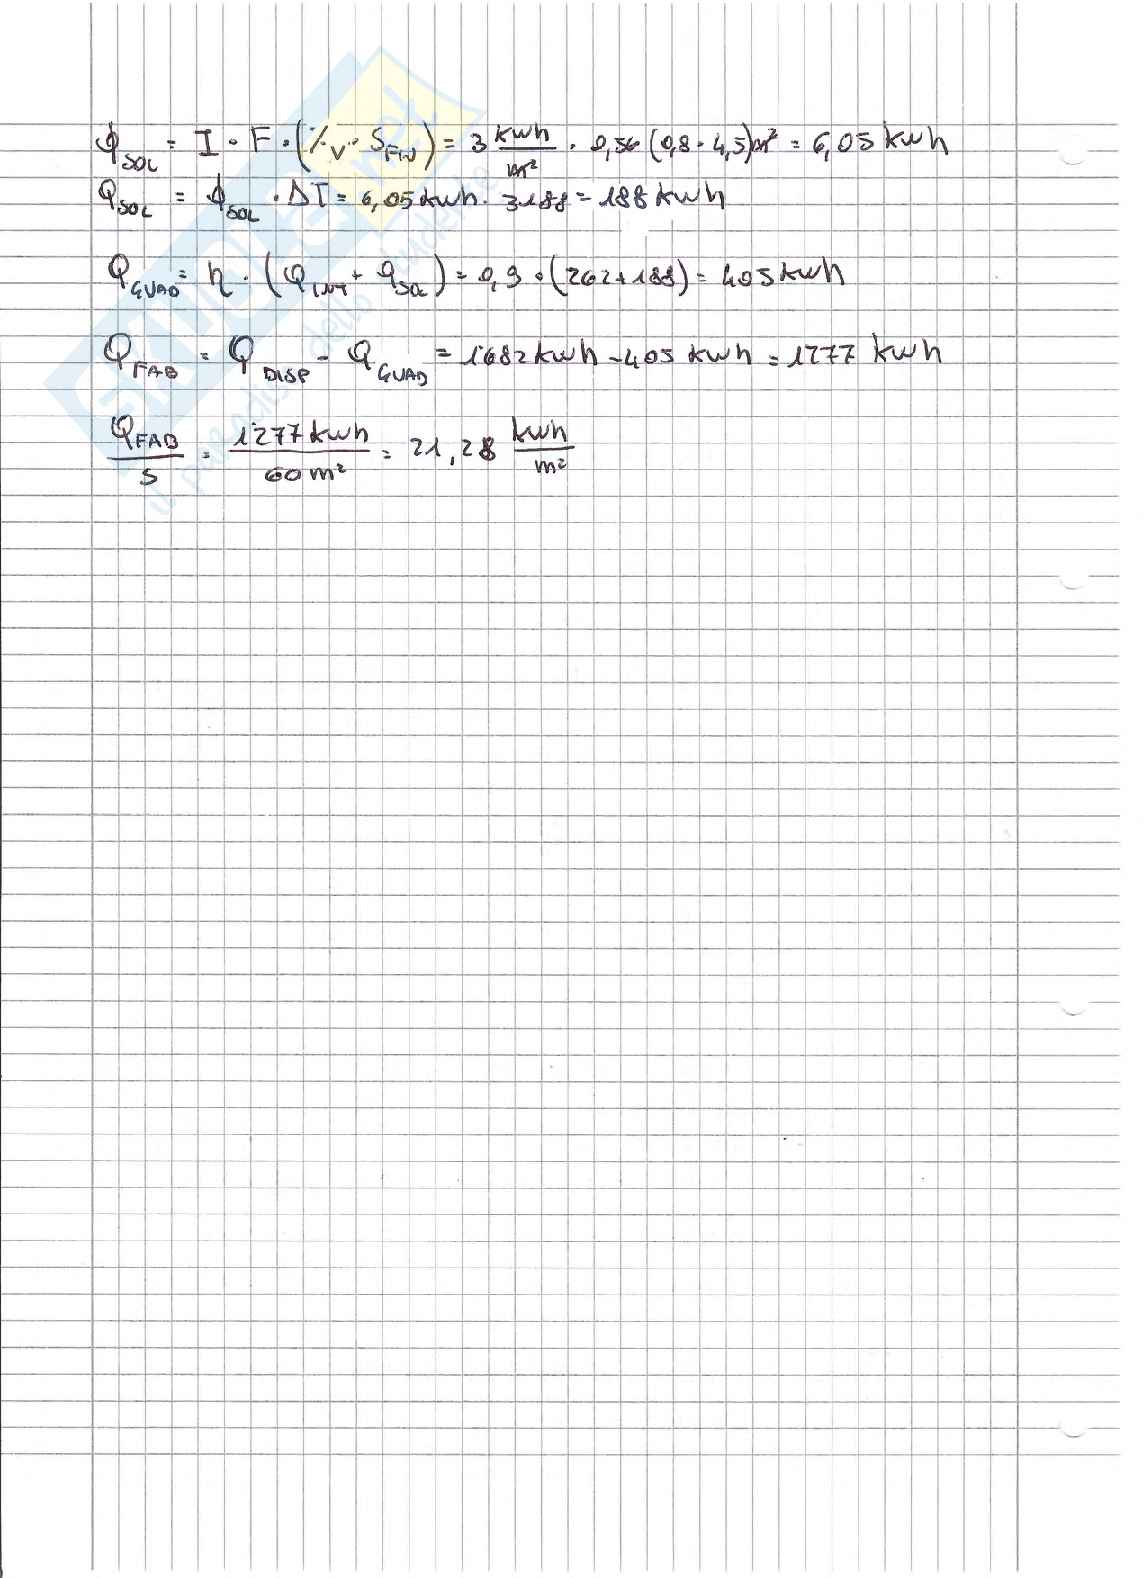 ϕSOL = I · F · (%V · SFIN) = 3 kWh/m² · 0,56 (0,8 · 4,5)m² = 6,05 kWh
QSOL = ϕSOL · ΔT = 6,05 kWh · 31gg = 188 kWh
QGUAD = η · (QINT + QSOL) = 0,9 · (262+188) = 405 kWh
QFAB = QDISP - QGUAD = 1682 kWh - 405 kWh = 1277 kWh
QFAB/S = 1277 kWh/60 m² = 21,28 kWh/m²
SKUOLA.net
il paradiso dello studente